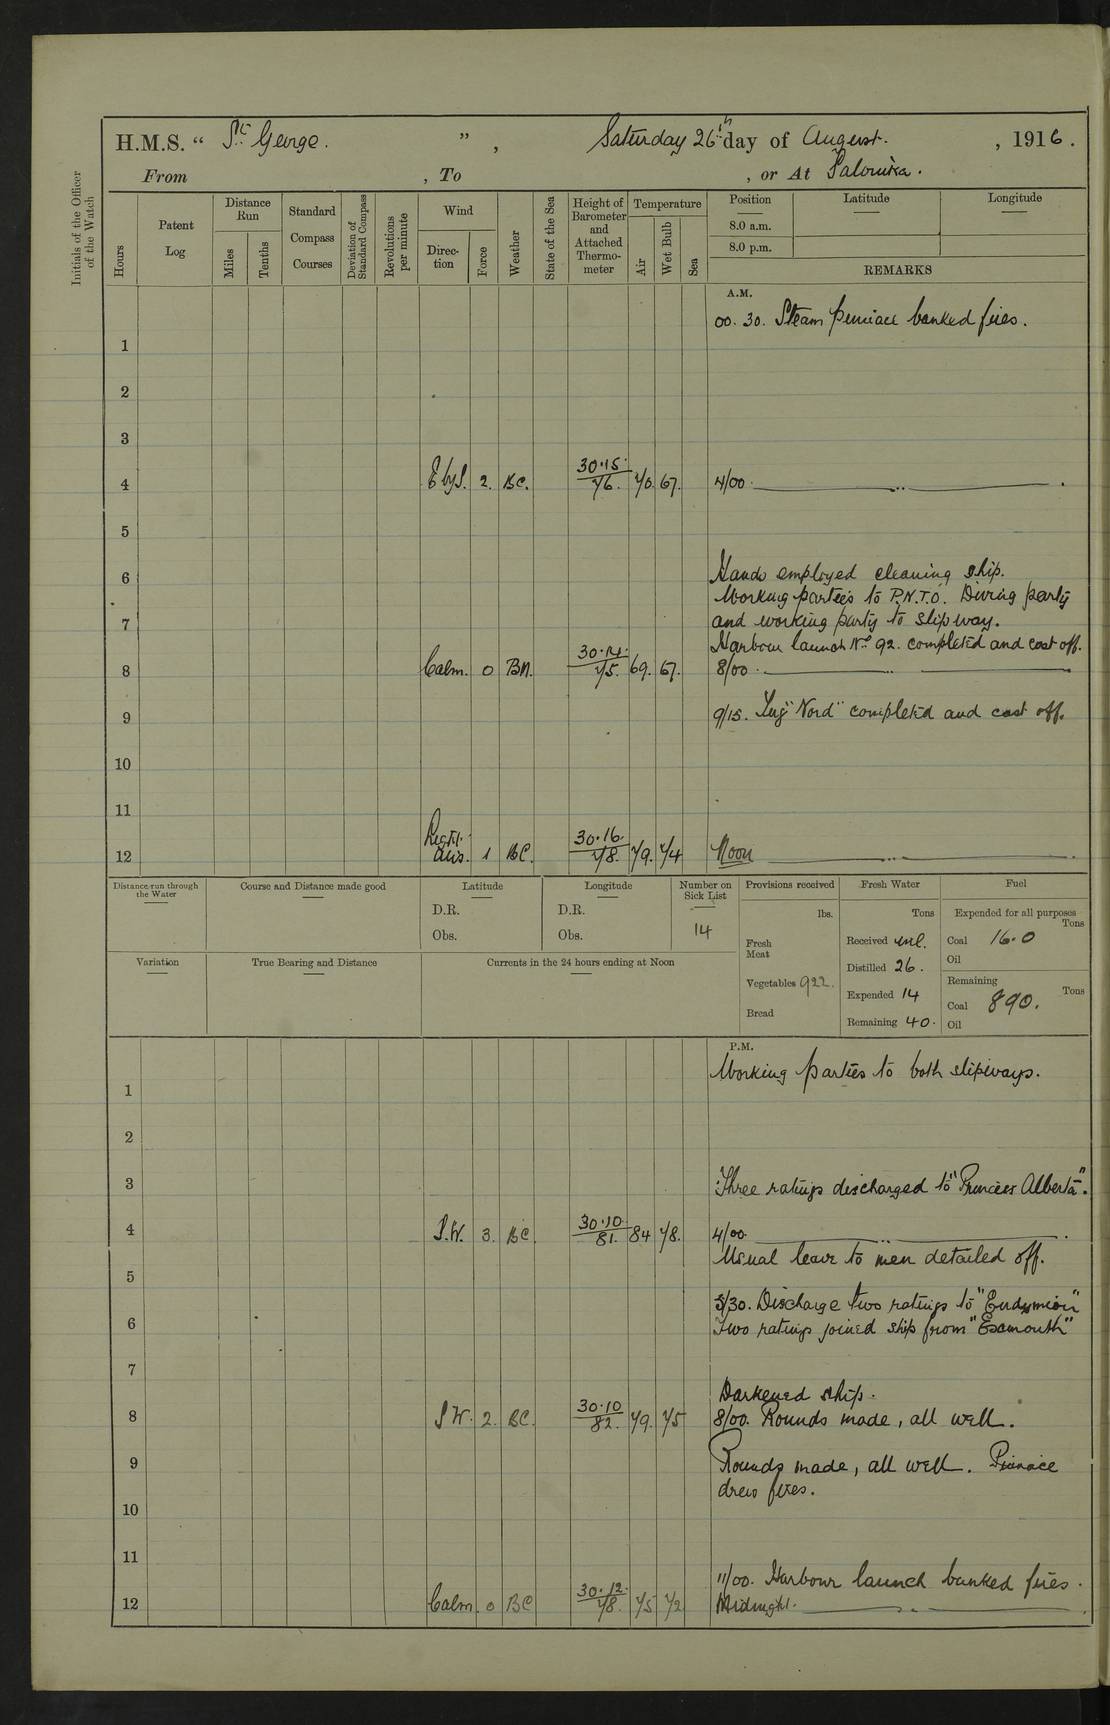 H.M.S. “ St. George. ” , Saturday 26th day of August. , 1916.
From , To , or At Salonika.
Initials of the Officer of the Watch
Hours
Patent Log
Distance Run
Miles
Tenths
Standard Compass Courses
Deviation of Standard Compass
Revolutions per minute
Wind
Direction
Force
Weather
State of the Sea
Height of Barometer and Attached Thermometer
Temperature
Air
Wet Bulb
Sea
Position
8.0 a.m.
8.0 p.m.
Latitude
Longitude
REMARKS
A.M.
00.30. Steam pinnace banked fires.
1
2
3
4 E by S. 2. BC. 30.15. 76. 70. 67. 4/00.
5
6 Hands employed cleaning ship.
Working parties to P.N.T.O. Diving party
7 and working party to slipway.
Harbour launch No. 92. completed and cast off.
8 Calm. 0 BM. 30.14. 75. 69. 67. 8/00.
9 9/15. Tug "Nord" completed and cast off.
10
11
12 Light airs. 1 BC. 30.16. 78. 79. 74 Noon
Distance run through the Water
Course and Distance made good
Latitude
D.R.
Obs.
Longitude
D.R.
Obs.
Number on Sick List
14
Provisions received
lbs.
Fresh Meat
Vegetables 922.
Bread
Fresh Water
Tons
Received nil.
Distilled 26.
Expended 14
Remaining 40.
Fuel
Expended for all purposes
Tons
Coal 16.0
Oil
Remaining
Tons
Coal 890.
Oil
Variation
True Bearing and Distance
Currents in the 24 hours ending at Noon
P.M.
Working parties to both slipways.
1
2
3 Three ratings discharged to "Princess Alberta".
4 S.W. 3. BC. 30.10 81. 84 78. 4/00.
Usual leave to men detailed off.
5
5/30. Discharge two ratings to "Endymion"
6 Two ratings joined ship from "Exmouth"
7
Darkened ship.
8 S W. 2. BC. 30.10 82. 79. 75 8/00. Rounds made, all well.
9 Rounds made, all well. Pinnace
drew fires.
10
11
11/00. Harbour launch banked fires.
12 Calm. 0 BC 30.12. 78. 75 72 Midnight.